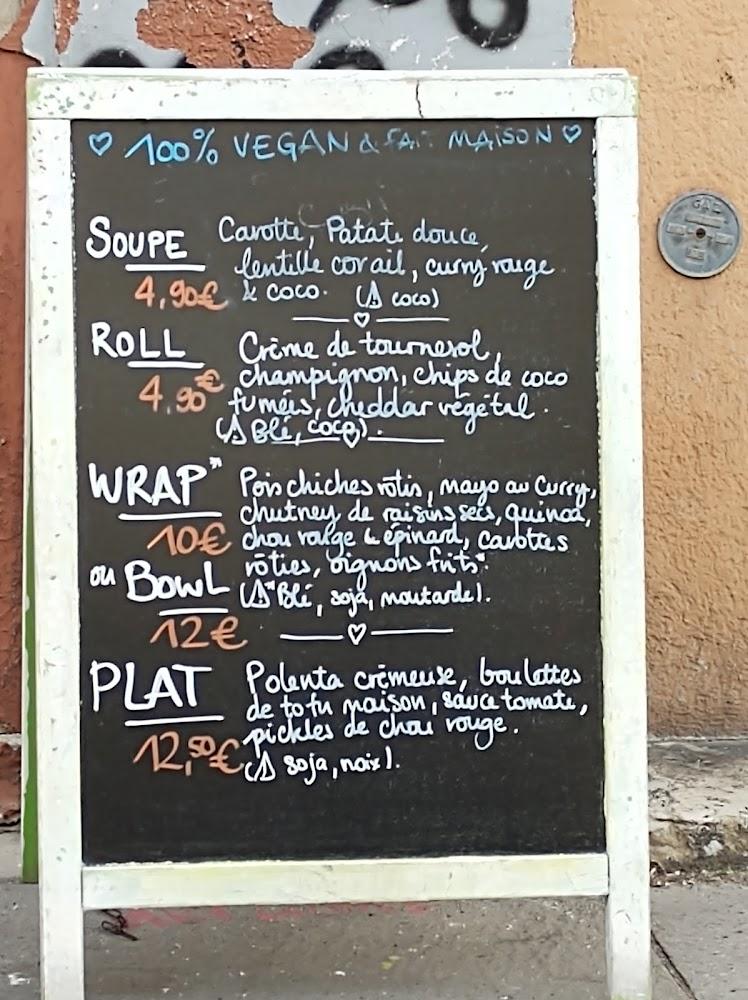 ♡ 100% VEGAN & FAIT MAISON ♡
SOUPE Carotte, Patate douce,
lentille corail, curry rouge
4,90€ & coco. (⚠ coco)
ROLL Crème de tournesol,
champignon, chips de coco
4,90€ fumées, cheddar végétal.
(⚠ Blé, coco).
WRAP* Pois chiches rôtis, mayo au curry,
chutney de raisins secs, quinoa,
10€ chou rouge & épinard, carottes
ou BOWL rôties, oignons frits*.
(⚠ *Blé, soja, moutarde).
12€
PLAT Polenta crèmeuse, boulettes
de tofu maison, sauce tomate,
pickles de chou rouge.
12,50€ (⚠ soja, noix).
GAZ